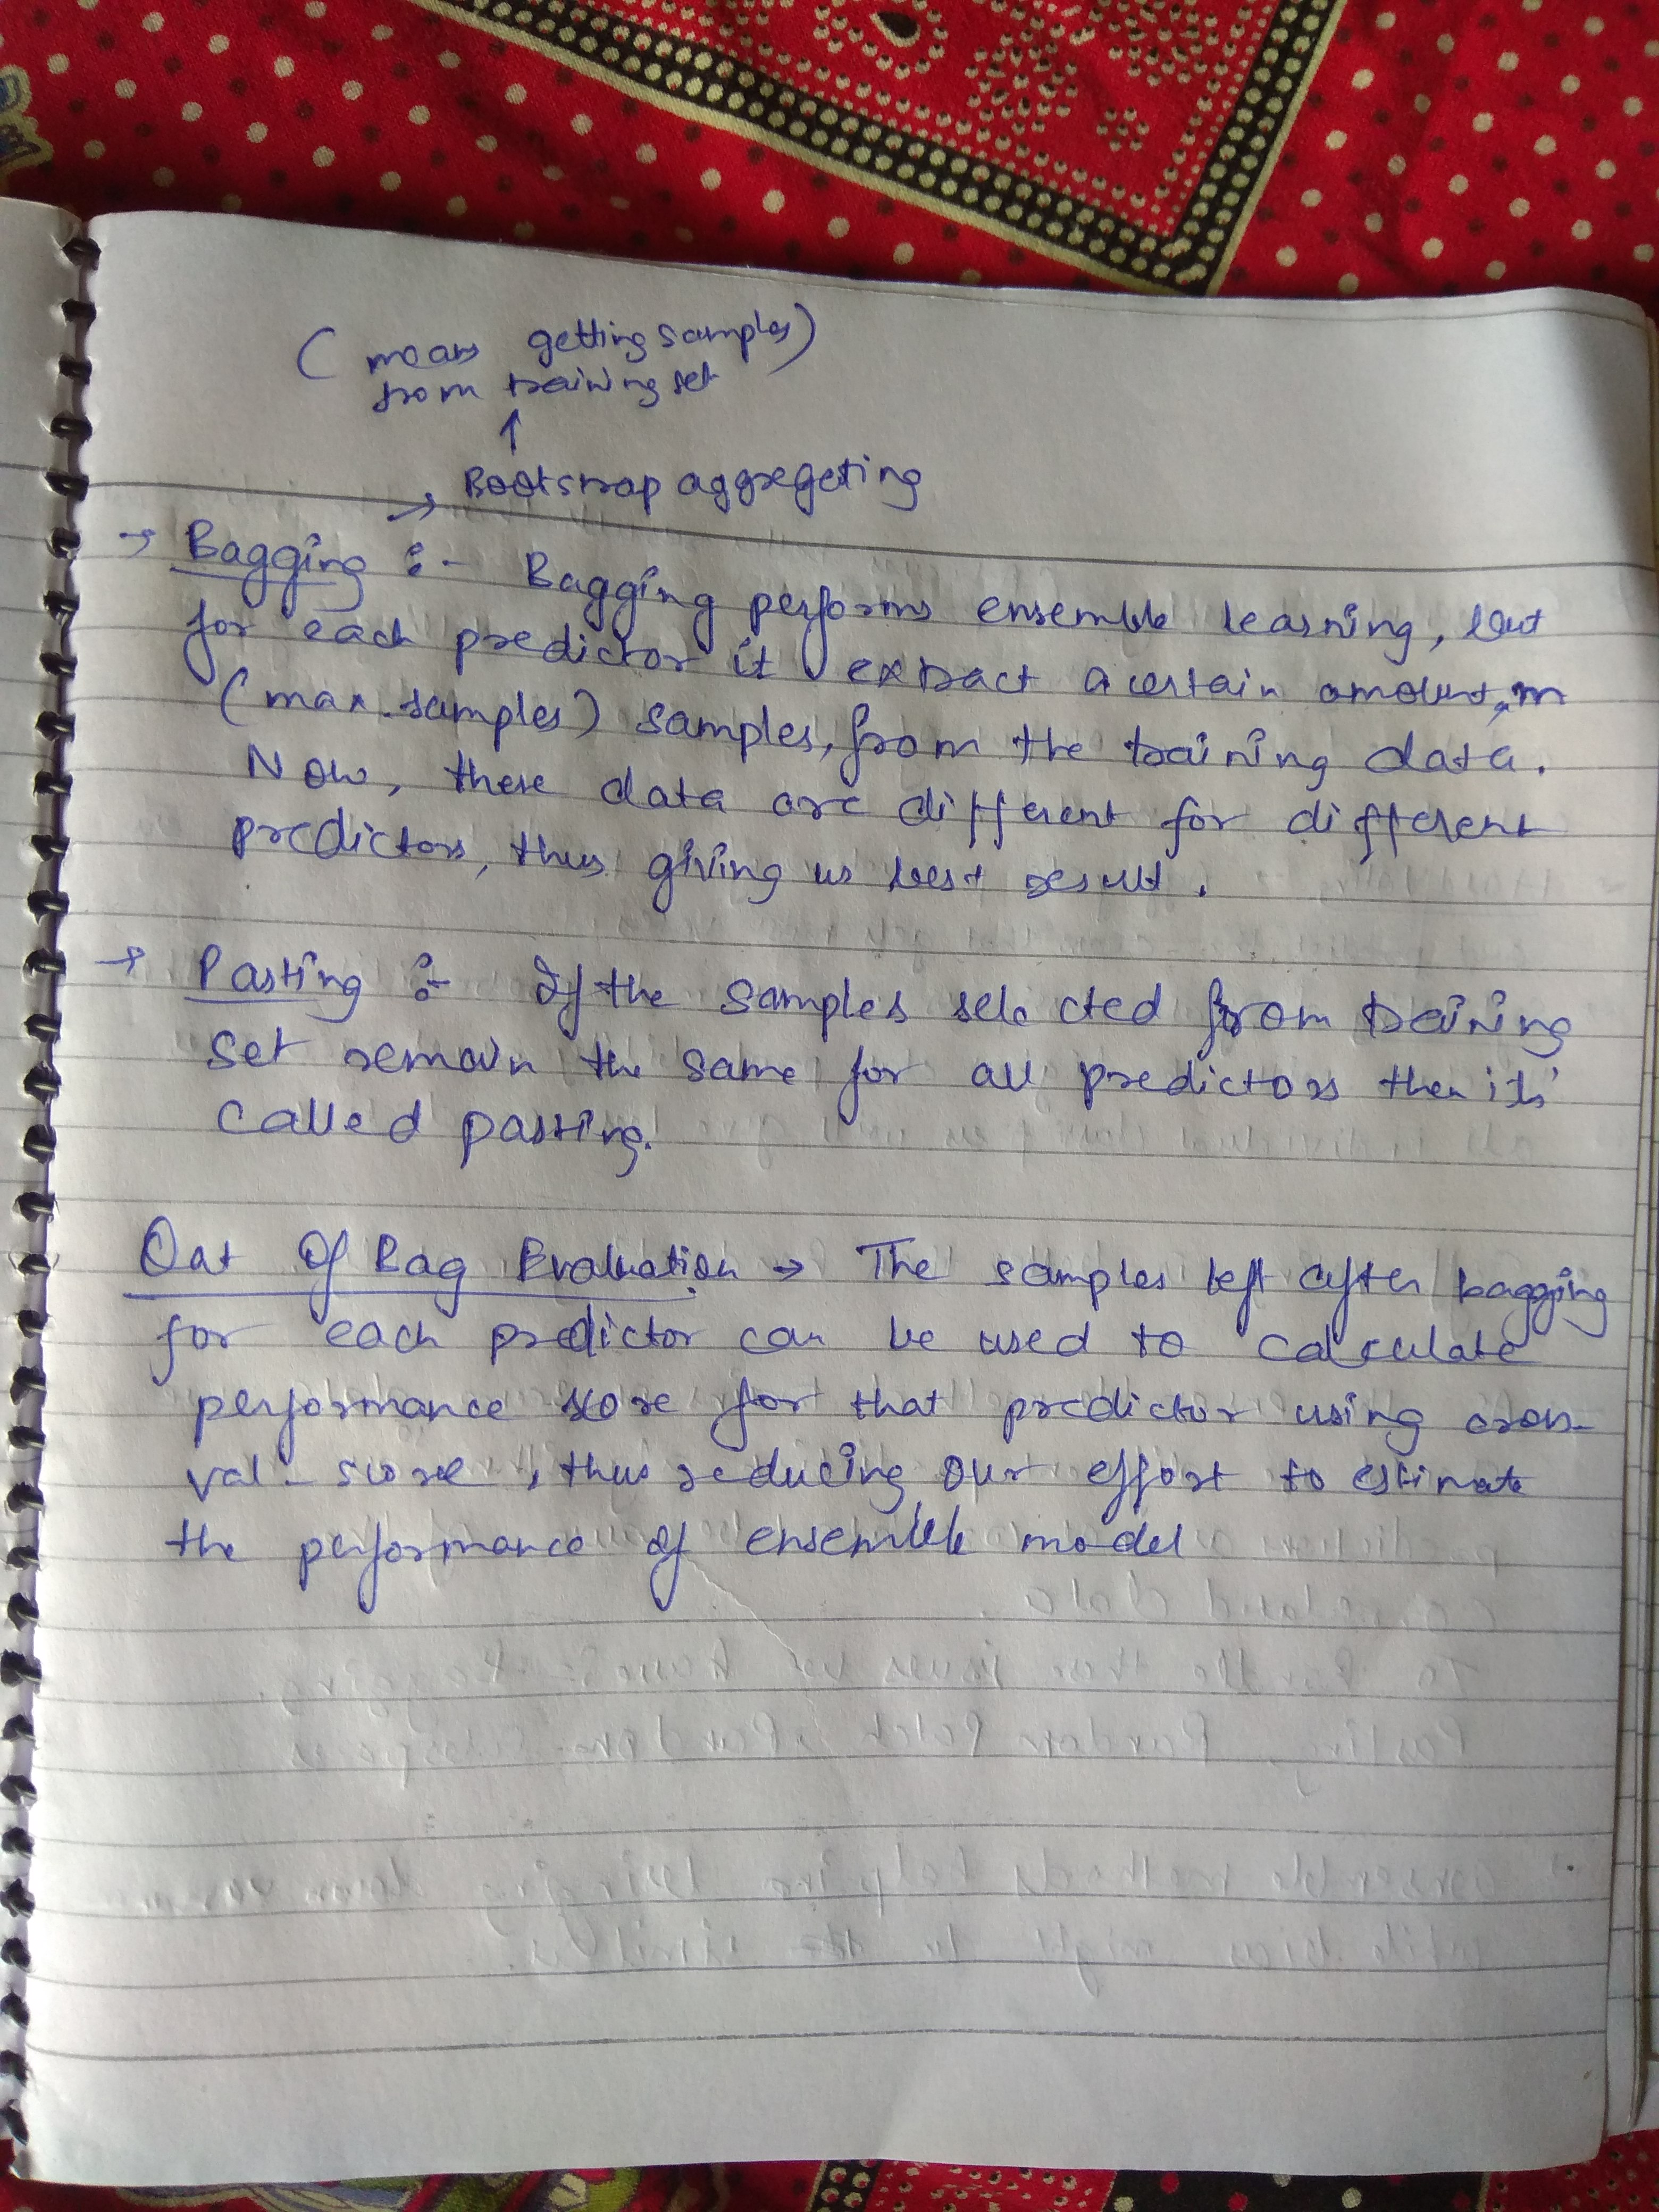 ( means getting samples)
from training set
↑
→ Bootstrap aggregeting
→ Bagging :- Bagging performs ensemble learning, but
for each predictor it extract a certain amount, m
(max.samples) samples, from the training data.
Now, these data are different for different
predictors, thus giving us best result.
→ Pasting :- If the samples selected from training
set remain the same for all predictors then its'
called pasting.
Oat Of Bag Evaluation → The samples left after bagging
for each predictor can be used to calculate
performance score for that predictor using cross-
val-score, thus reducing our effort to estimate
the performance of ensemble model